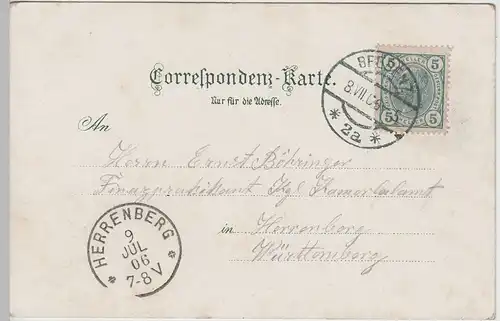 Correspondenz-Karte.
Nur für die Adresse.
5 5
BREGENZ
8.VII.06
* 2a *
An
Herrn Ernst Böhringer
Finanzpraktikant Kgl Kameralamt
in Herrenberg
Württemberg
HERRENBERG
9
JUL
06
7-8 V